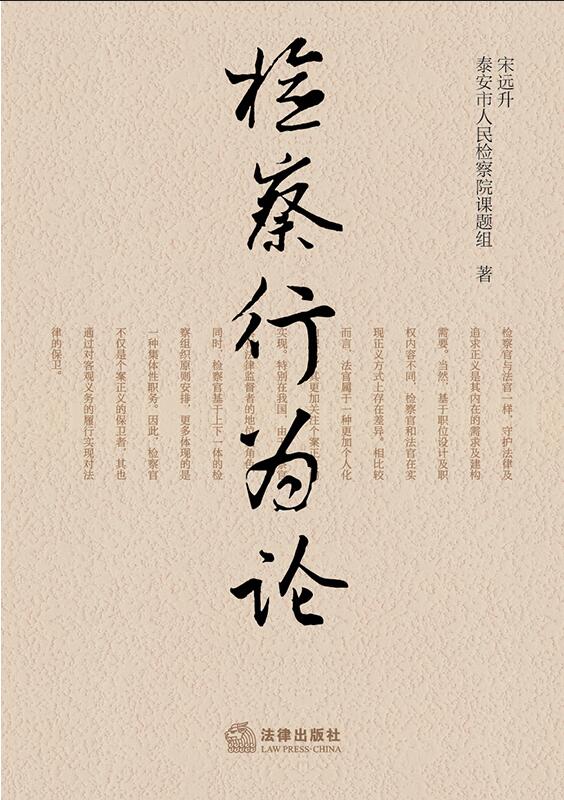 检察行为论
宋远升
泰安市人民检察院课题组 著
检察官与法官一样，守护法律及
追求正义是其内在的需求及建构
需要。当然，基于职位设计及职
权内容不同，检察官和法官在实
现正义方式上存在差异。相比较
而言，法官属于一种更加个人化
其更加关注个案正
实现。特别在我国，由
法律监督者的地位 角色
同时，检察官基于上下一体的检
察组织原则安排，更多体现的是
一种集体性职务。因此，检察官
不仅是个案正义的保卫者，其也
通过对客观义务的履行实现对法
律的保卫。
法律出版社
LAW PRESS·CHINA